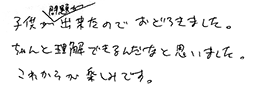 子供が問題が出来たのでおどろきました。
ちゃんと理解できるんだなと思いました。
これからが楽しみです。